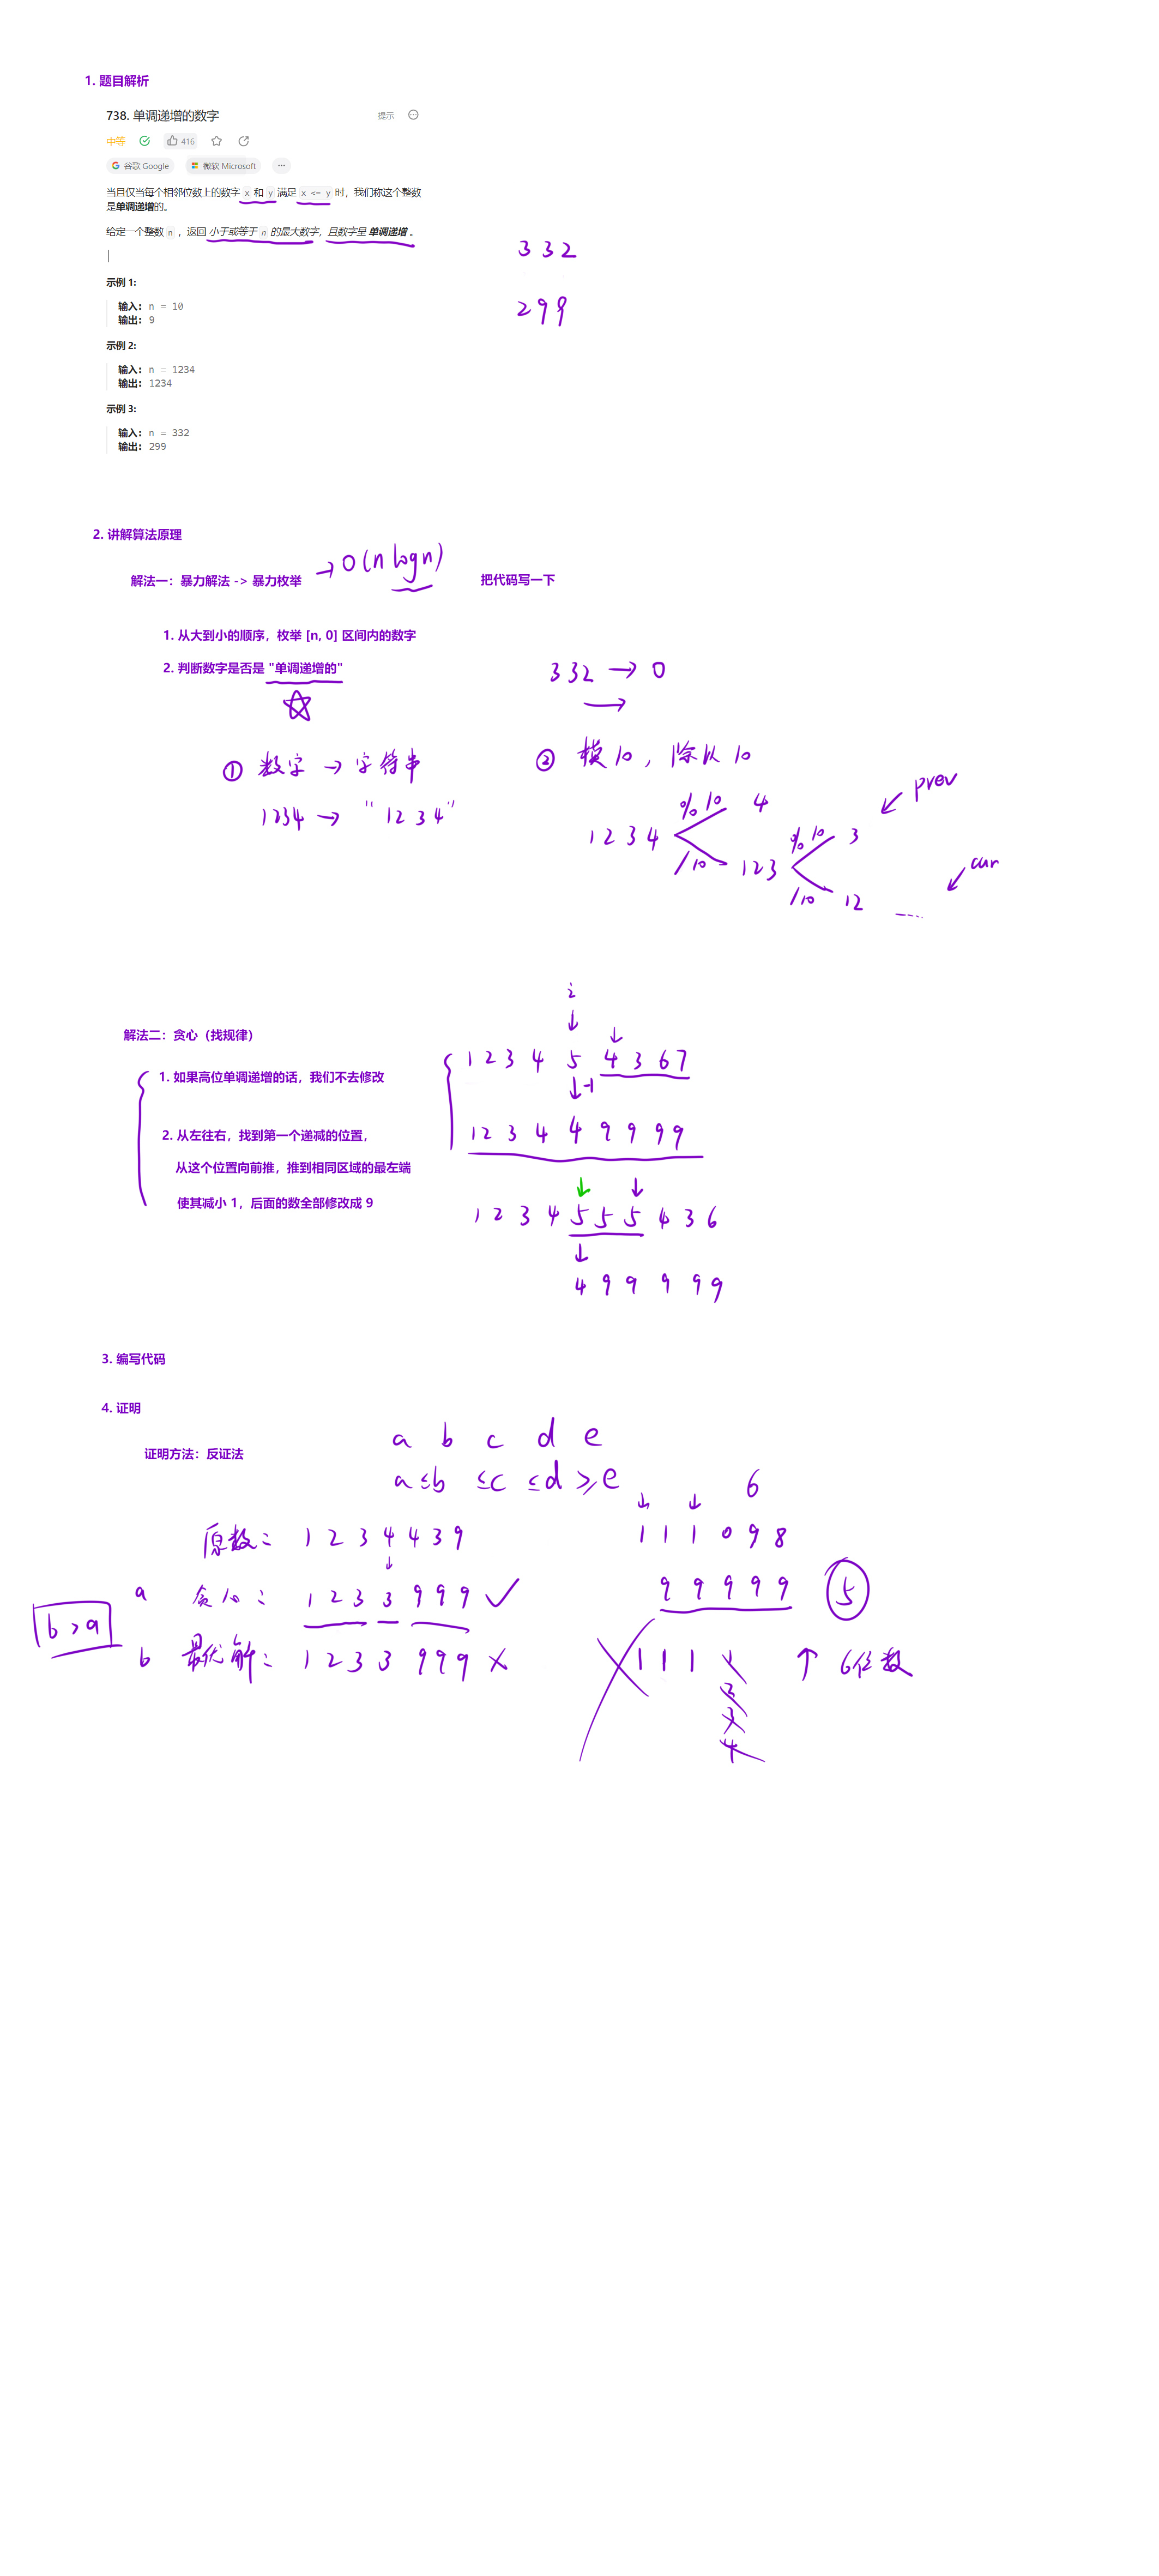 1. 题目解析
738. 单调递增的数字 提示
中等 416
谷歌 Google 微软 Microsoft ...
当且仅当每个相邻位数上的数字 x 和 y 满足 x <= y 时，我们称这个整数
是单调递增的。
给定一个整数 n ，返回 小于或等于 n 的最大数字，且数字呈 单调递增 。
3 3 2
2 9 9
示例 1:
输入: n = 10
输出: 9
示例 2:
输入: n = 1234
输出: 1234
示例 3:
输入: n = 332
输出: 299
2. 讲解算法原理
解法一：暴力解法 -> 暴力枚举 → O(n logn) 把代码写一下
1. 从大到小的顺序，枚举 [n, 0] 区间内的数字
2. 判断数字是否是 "单调递增的"
332 → 0
① 数字 → 字符串
1234 → "1234"
② 模10，除以10
1234 %10 4 prev
/10 123 %10 3
/10 12 ---- cur
解法二：贪心（找规律）
1. 如果高位单调递增的话，我们不去修改
2. 从左往右，找到第一个递减的位置，
从这个位置向前推，推到相同区域的最左端
使其减小 1，后面的数全部修改成 9
i
1 2 3 4 5 4 3 6 7
-1
1 2 3 4 4 9 9 9 9
1 2 3 4 5 5 5 4 3 6
4 9 9 9 9 9
3. 编写代码
4. 证明
证明方法：反证法
a b c d e
a ≤ b ≤ c ≤ d ≥ e
原数: 1 2 3 4 4 3 9
a 贪心: 1 2 3 3 9 9 9 ✓
b > a
b 最优解: 1 2 3 3 9 9 9 ×
6
1 1 1 0 9 8
9 9 9 9 9 5
1 1 1 1 ↑ 6位数
2
3
4